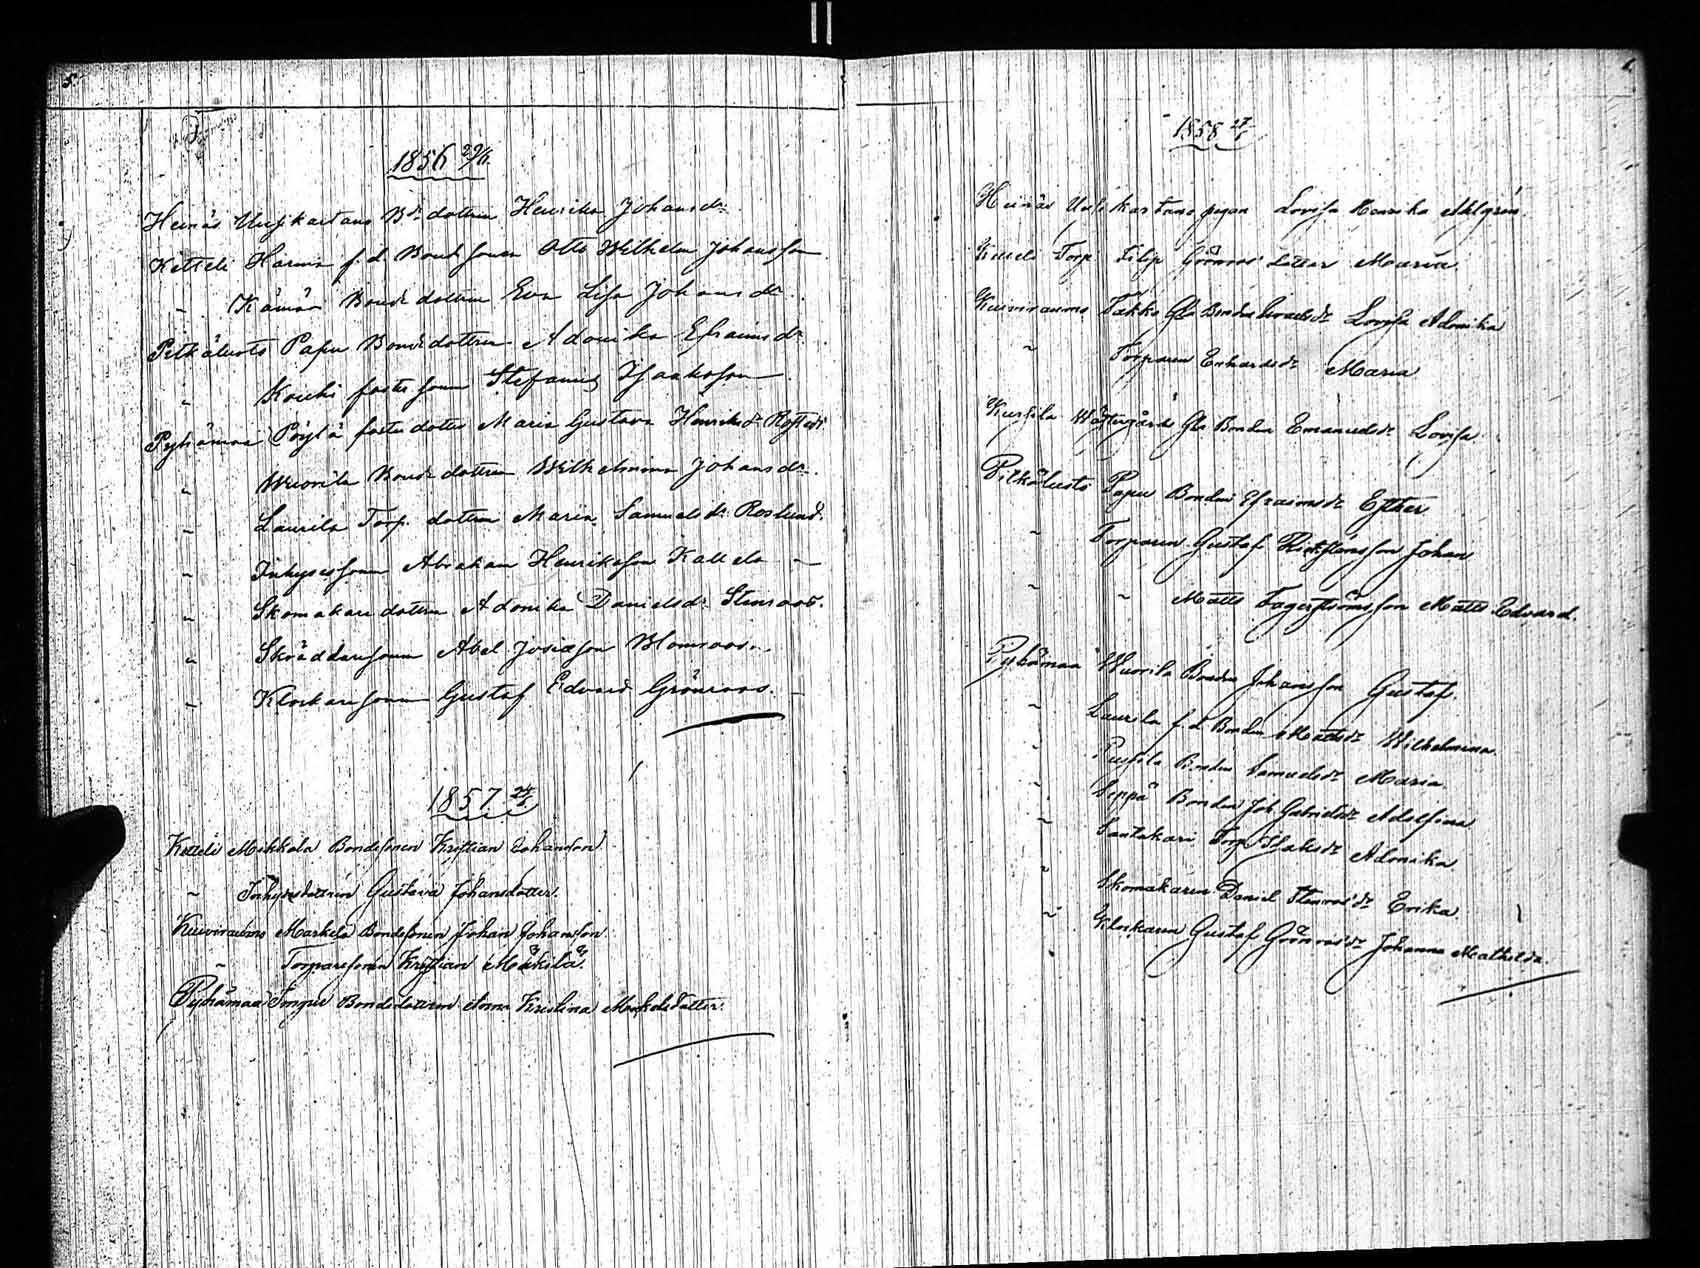 5.
1856 29/6.
Heinäs Uusikartano Bd. dottren Henrika Johansdr.
Ketteli Harma f. d. Bondsonen Otto Wilhelm Johansson
" Kämär Bonde dottren Eva Lisa Johansdr.
Pitkäluoto Papu Bonde dottren Adonika Efraimsdr.
" Kouhi foster sonen Stefanus Isaaksson
Pyhämaa Pöylä foster dotter Maria Gustava Henriksdr.
" Wuorila Bonde dottren Wilhelmina Johansdr.
" Laurila Torp. dottren Maria Samuelsdr. Roslund.
" Inhysessonen Abraham Henriksson Kallela
" Skomakare dottren Adonika Danielsdr. Stenroos.
" Skräddaresonen Abel Josiasson Blomroos.
" Klockaresonen Gustaf Edvard Grönroos.
1857 24/5.
Ketteli Mikkola Bondesonen Kristian Johansson
" Inhysesdottren Gustava Johansdotter.
Kuivirauma Markela Bondesonen Johan Johansson.
" Torparesonen Kristian Mäkilä.
Pyhämaa Bondedottren Anna Kristina
1858 27/
Heinäs kartano pigan Lovisa Henrika Ahlgrén.
Torp. Filip Grönroos' dotter Maria.
Kuivirauma Takko Gla Bonden Lovisa Adonika
" Torparen Enhardsdr. Maria
Kursila Wästergårds Gla Bonden Emanuelsdr. Lovisa.
Pitkäluoto Papu Bonden Efraimsdr. Esther
" Torparen Gustaf Johan
" " Matts Fagerströms son Matts Edvard.
Pyhämaa Wuorila Bonden Johansson Gustaf.
" Laurila f. d. Bonden Mattsdr. Wilhelmina.
" Bonden Samuelsdr. Maria.
" Seppä Bonden Joh. Gabrielsdr. Adolfina.
" Santakari Torp. Isaksdr. Adonika.
" Skomakaren Daniel Stenroos' dr. Erika.
" Klockaren Gustaf Grönroos' dr. Johanna Mathilda.